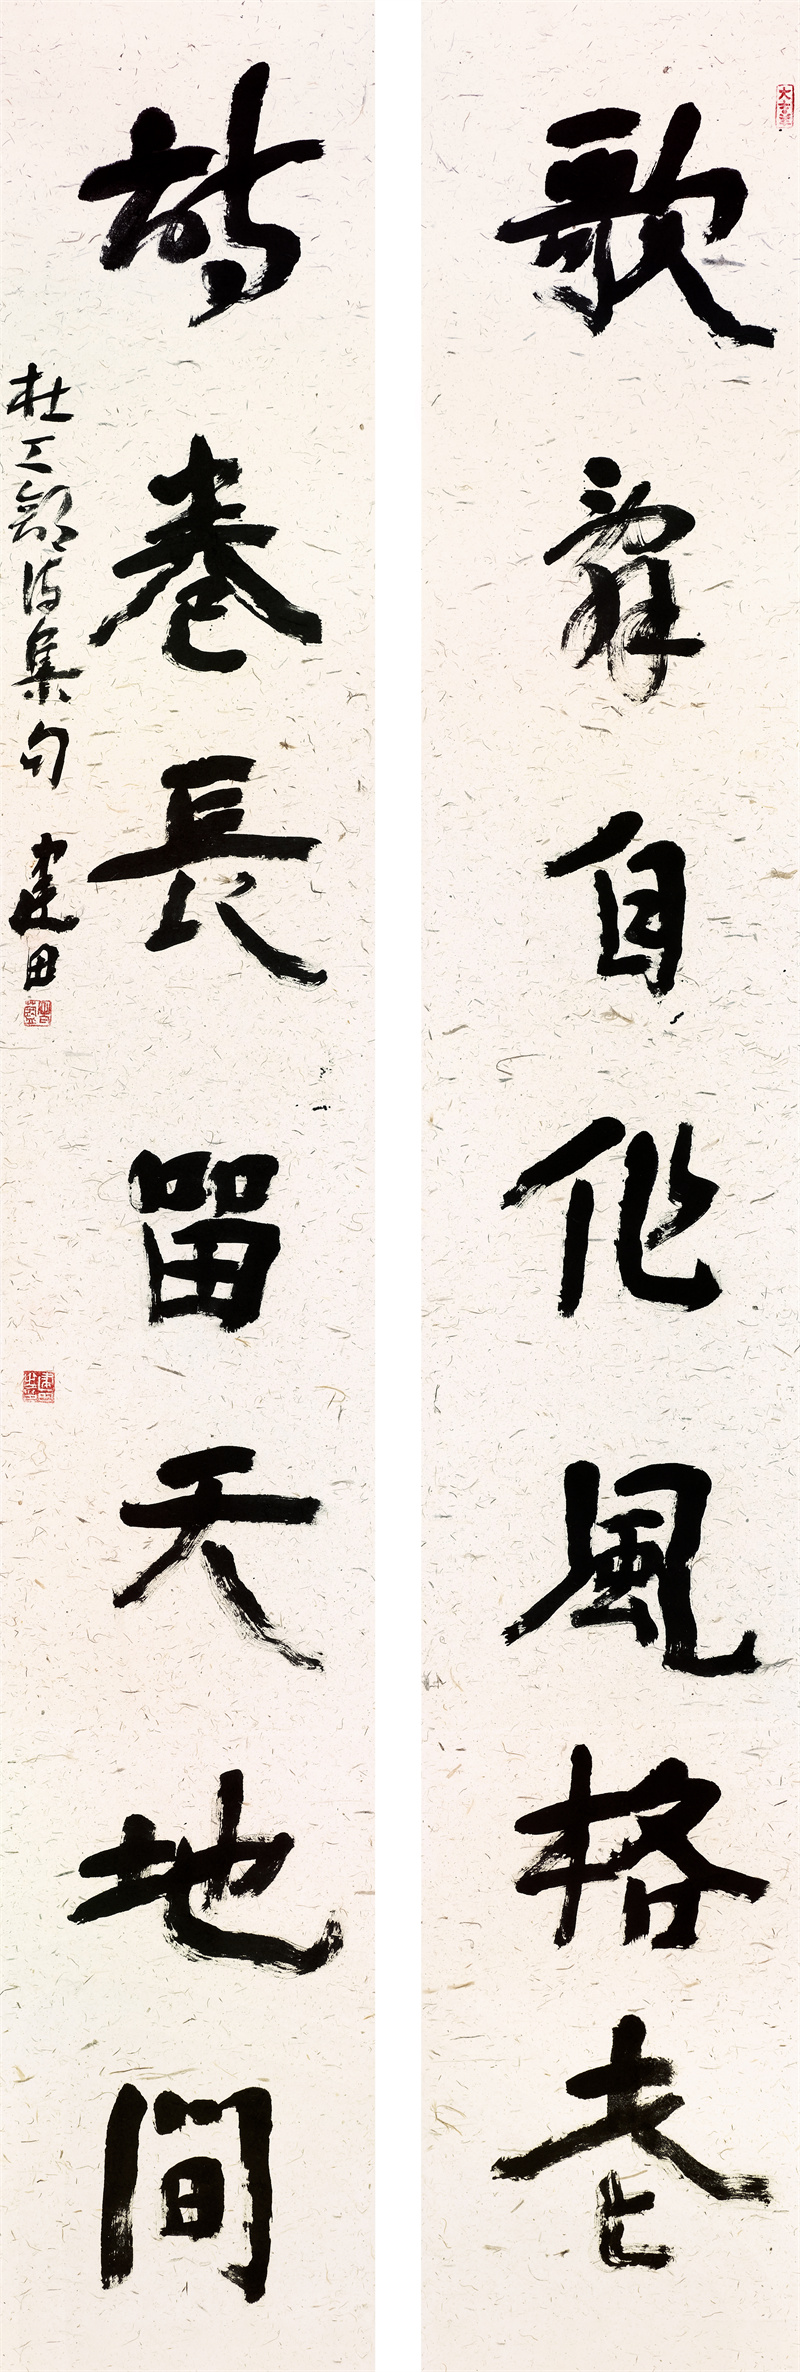 歌辭自作風格老
詩卷長留天地間
杜工部詩集句 建田